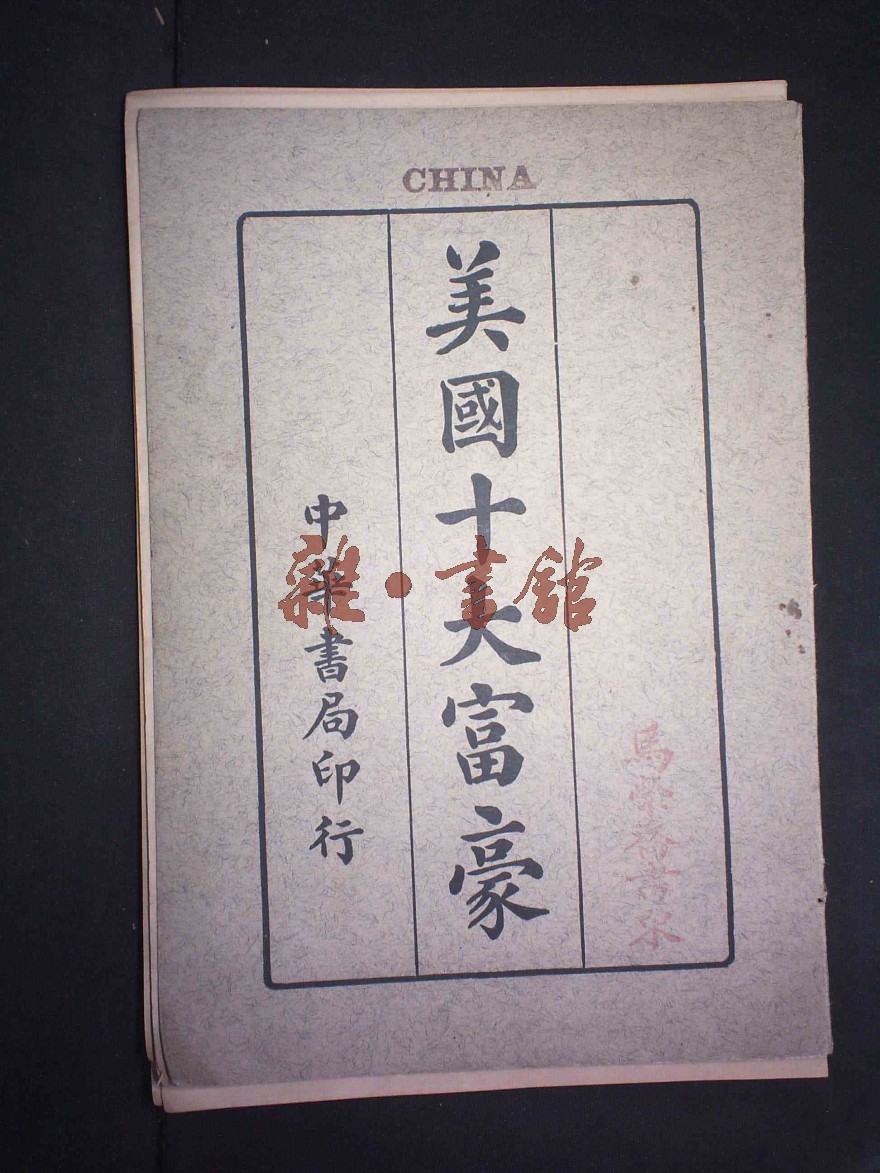 CHINA
美國十大富豪
中華書局印行
雜·書館